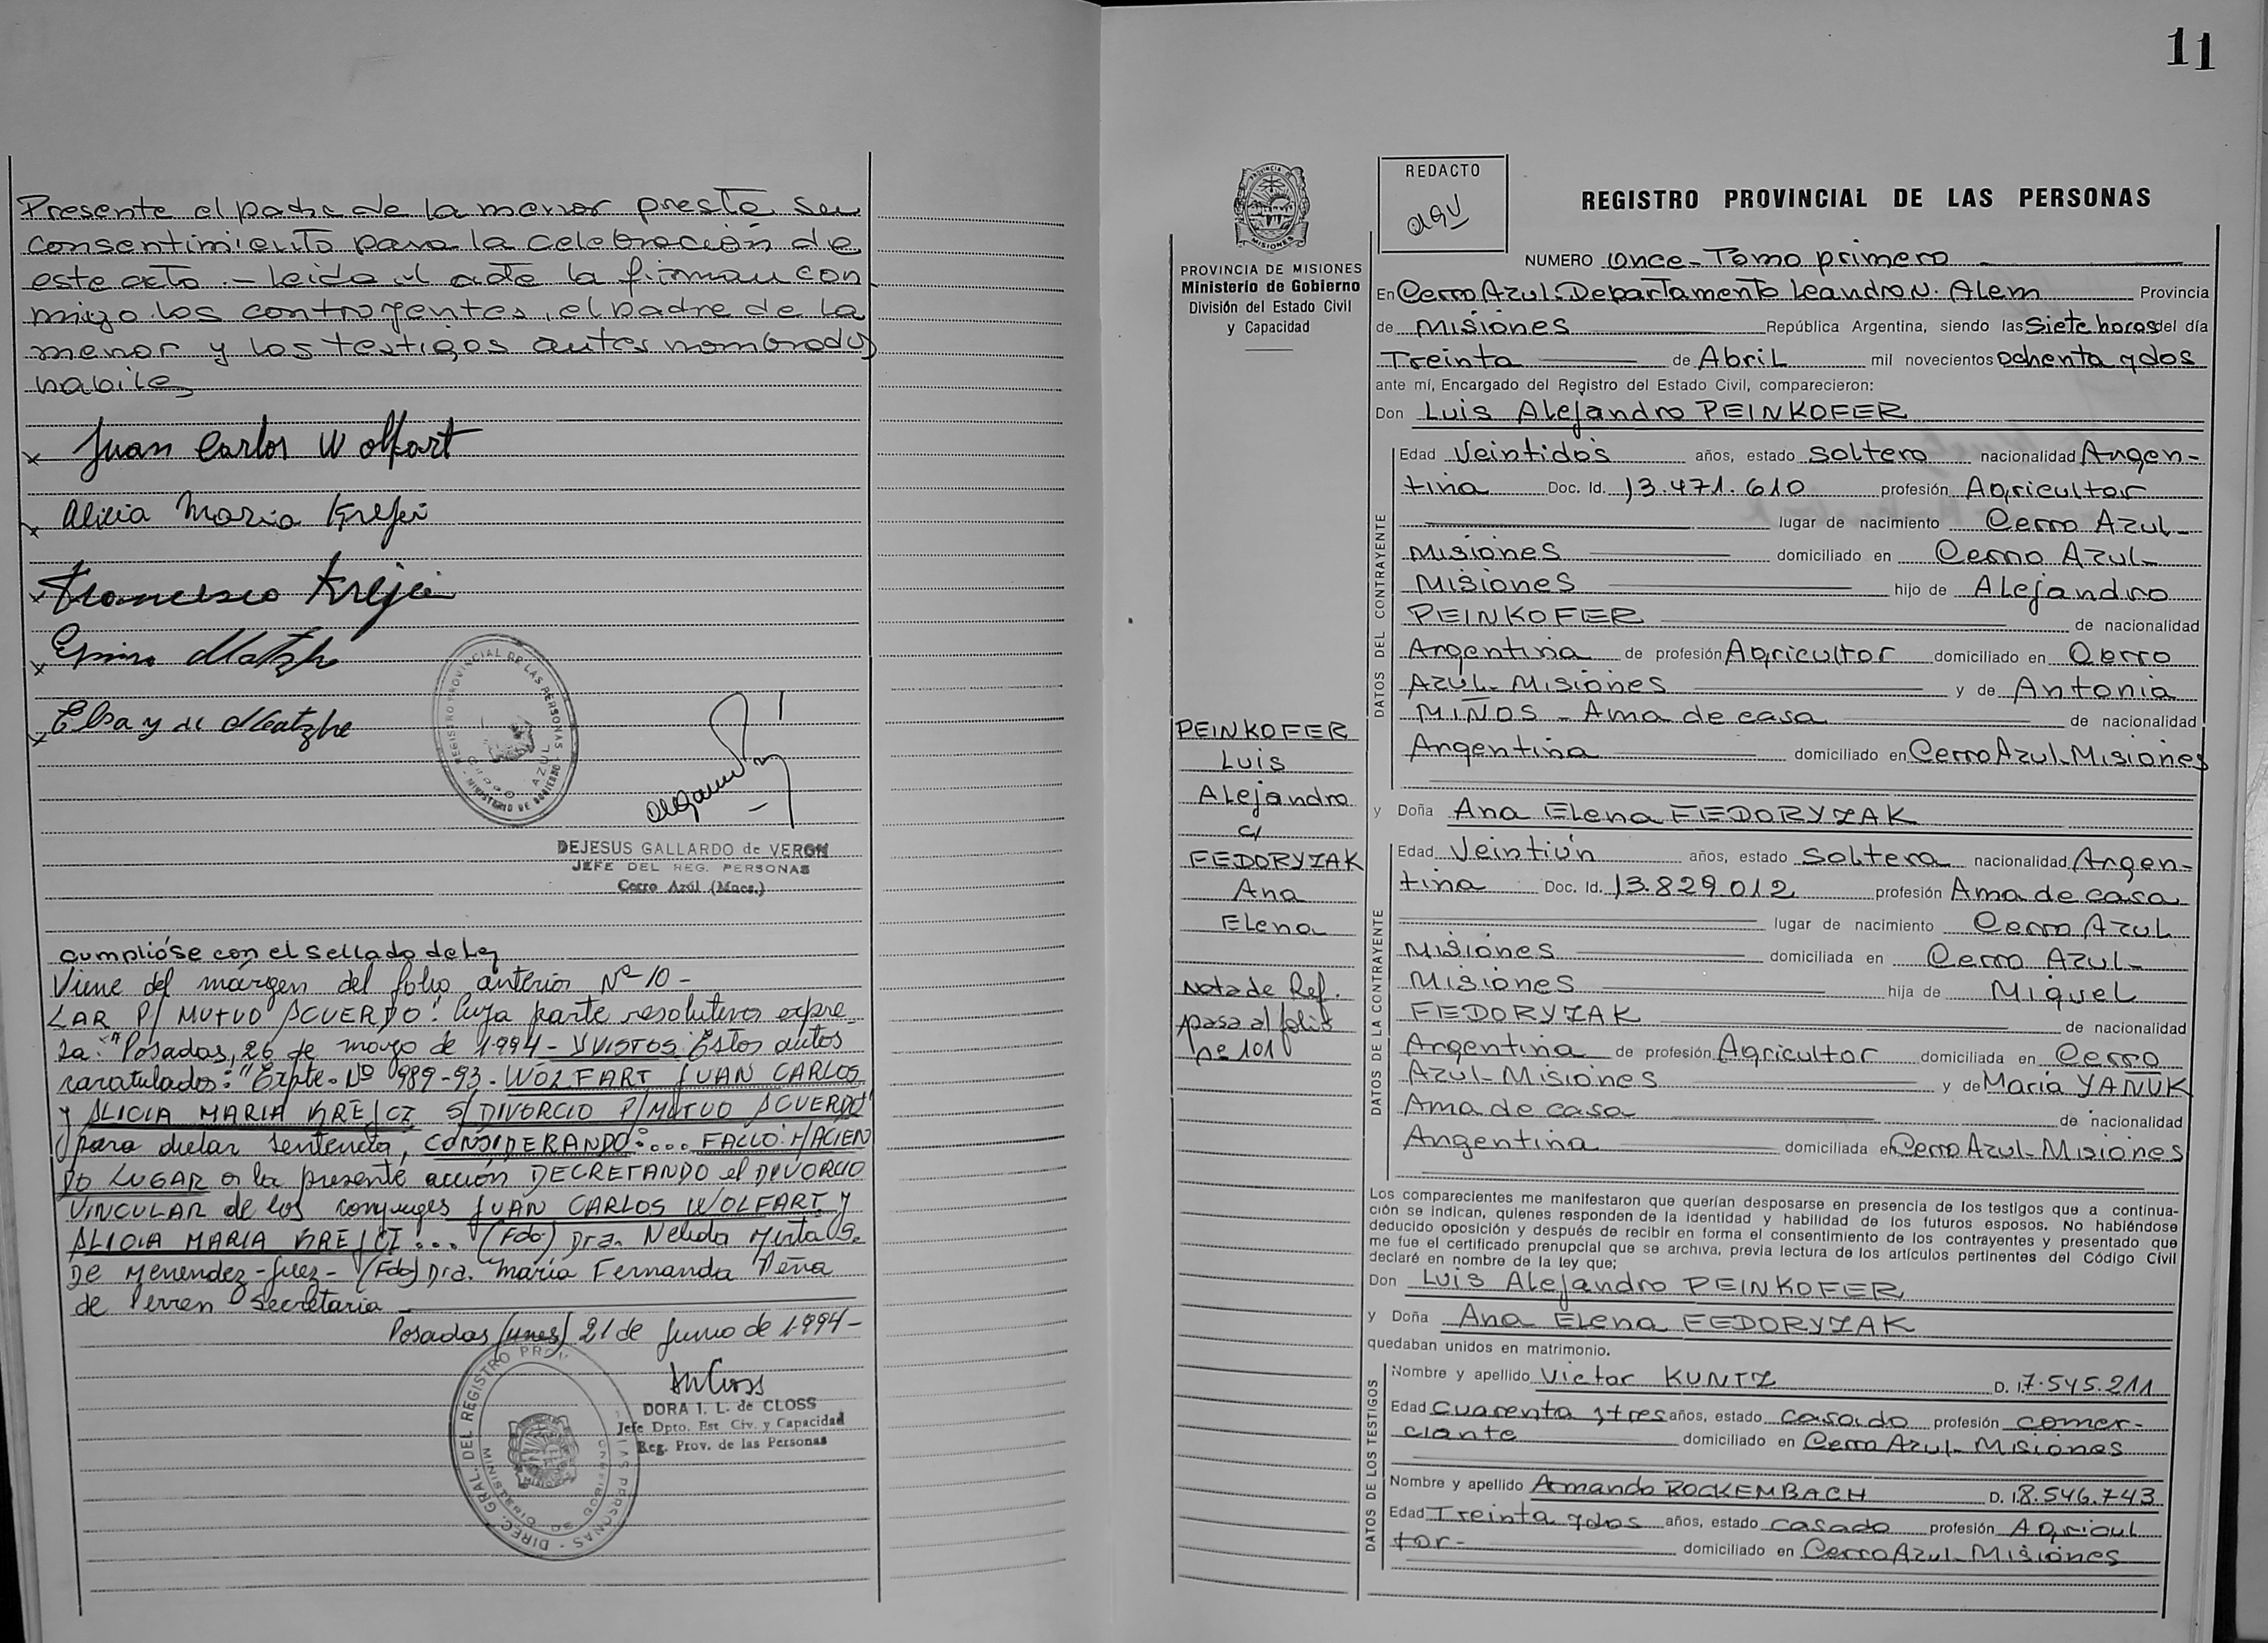 Presente el padre de la menor presta su
consentimiento para la celebración de
este acto.- Leida el acta la firman con
migo los contrayentes, el padre de la
menor y los testigos antes nombrados
habiles
x Juan Carlos Wolfart
x Alicia Maria Krejci
x Francisco Krejci
x
x Elsa Y de Matzke
REGISTRO PROVINCIAL DE LAS PERSONAS - MINISTERIO DE GOBIERNO -
CERRO AZUL
DEJESUS GALLARDO de VERON
JEFE DEL REG. PERSONAS
Cerro Azúl (Mnes.)
Cumplióse con el sellado de Ley
Viene del márgen del folio anterior Nº 10 -
LAR P/ MUTUO ACUERDO". Cuya parte resolutiva expre-
sa: "Posadas, 26 de mayo de 1994 - VVISTOS: Estos autos
caratulados: "Expte. Nº 989-93 - WOLFART JUAN CARLOS
Y ALICIA MARIA KREJCI S/ DIVORCIO P/MUTUO ACUERDO"
para dictar sentencia; CONSIDERANDO:... FALLO: HACIEN
DO LUGAR a la presente acción DECRETANDO el DIVORCIO
VINCULAR de los conyuges JUAN CARLOS WOLFART y
ALICIA MARIA KREJCI... (Fdo) Dra. Nelida Mirta S.
De Menendez - Juez - (Fdo) Dra. Maria Fernanda Peña
de Perren Secretaria -
Posadas (Mnes) 21 de Junio de 1994 -
DORA I. L. de CLOSS
Jefe Dpto. Est. Civ. y Capacidad
Reg. Prov. de las Personas
DIREC. GRAL DEL REGISTRO PROV
LAS PERSONAS
11
PROVINCIA DE MISIONES
PROVINCIA DE MISIONES
Ministerio de Gobierno
División del Estado Civil
y Capacidad
PEINKOFER
Luis
Alejandro
c/
FEDORYZAK
Ana
Elena
Nota de Ref.
pasa al folio
nº 101
REDACTO
REGISTRO PROVINCIAL DE LAS PERSONAS
NUMERO Once - Tomo primero
En Cerro Azul - Departamento Leandro N. Alem Provincia
de Misiones República Argentina, siendo las Siete horas del día
Treinta de Abril mil novecientos ochenta y dos
ante mí, Encargado del Registro del Estado Civil, comparecieron:
Don Luis Alejandro PEINKOFER
DATOS DEL CONTRAYENTE
Edad Veintidós años, estado Soltero nacionalidad Argen-
tina Doc. Id. 13.471.610 profesión Agricultor
lugar de nacimiento Cerro Azul -
Misiones domiciliado en Cerro Azul -
Misiones hijo de Alejandro
PEINKOFER de nacionalidad
Argentina de profesión Agricultor domiciliado en Cerro
Azul - Misiones y de Antonia
MIÑOS - Ama de casa de nacionalidad
Argentina domiciliado en Cerro Azul - Misiones
y Doña Ana Elena FEDORYZAK
DATOS DE LA CONTRAYENTE
Edad Veintiún años, estado Soltera nacionalidad Argen-
tina Doc. Id. 13.829.012 profesión Ama de casa
lugar de nacimiento Cerro Azul
Misiones domiciliada en Cerro Azul -
Misiones hija de Miguel
FEDORYZAK de nacionalidad
Argentina de profesión Agricultor domiciliado en Cerro
Azul - Misiones y de María YANUK
Ama de casa de nacionalidad
Argentina domiciliada en Cerro Azul - Misiones
Los comparecientes me manifestaron que querían desposarse en presencia de los testigos que a continua-
ción se indican, quienes responden de la identidad y habilidad de los futuros esposos. No habiéndose
deducido oposición y después de recibir en forma el consentimiento de los contrayentes y presentado que
me fue el certificado prenupcial que se archiva, previa lectura de los artículos pertinentes del Código Civil
declaré en nombre de la ley que;
Don Luis Alejandro PEINKOFER
y Doña Ana Elena FEDORYZAK
quedaban unidos en matrimonio.
DATOS DE LOS TESTIGOS
Nombre y apellido Victor KUNTZ D. I. 7.545.211
Edad Cuarenta y tres años, estado casado profesión comer-
ciante domiciliado en Cerro Azul - Misiones
Nombre y apellido Armando ROCKEMBACH D. I. 8.546.743
Edad Treinta y dos años, estado casado profesión Agricul
tor - domiciliado en Cerro Azul - Misiones